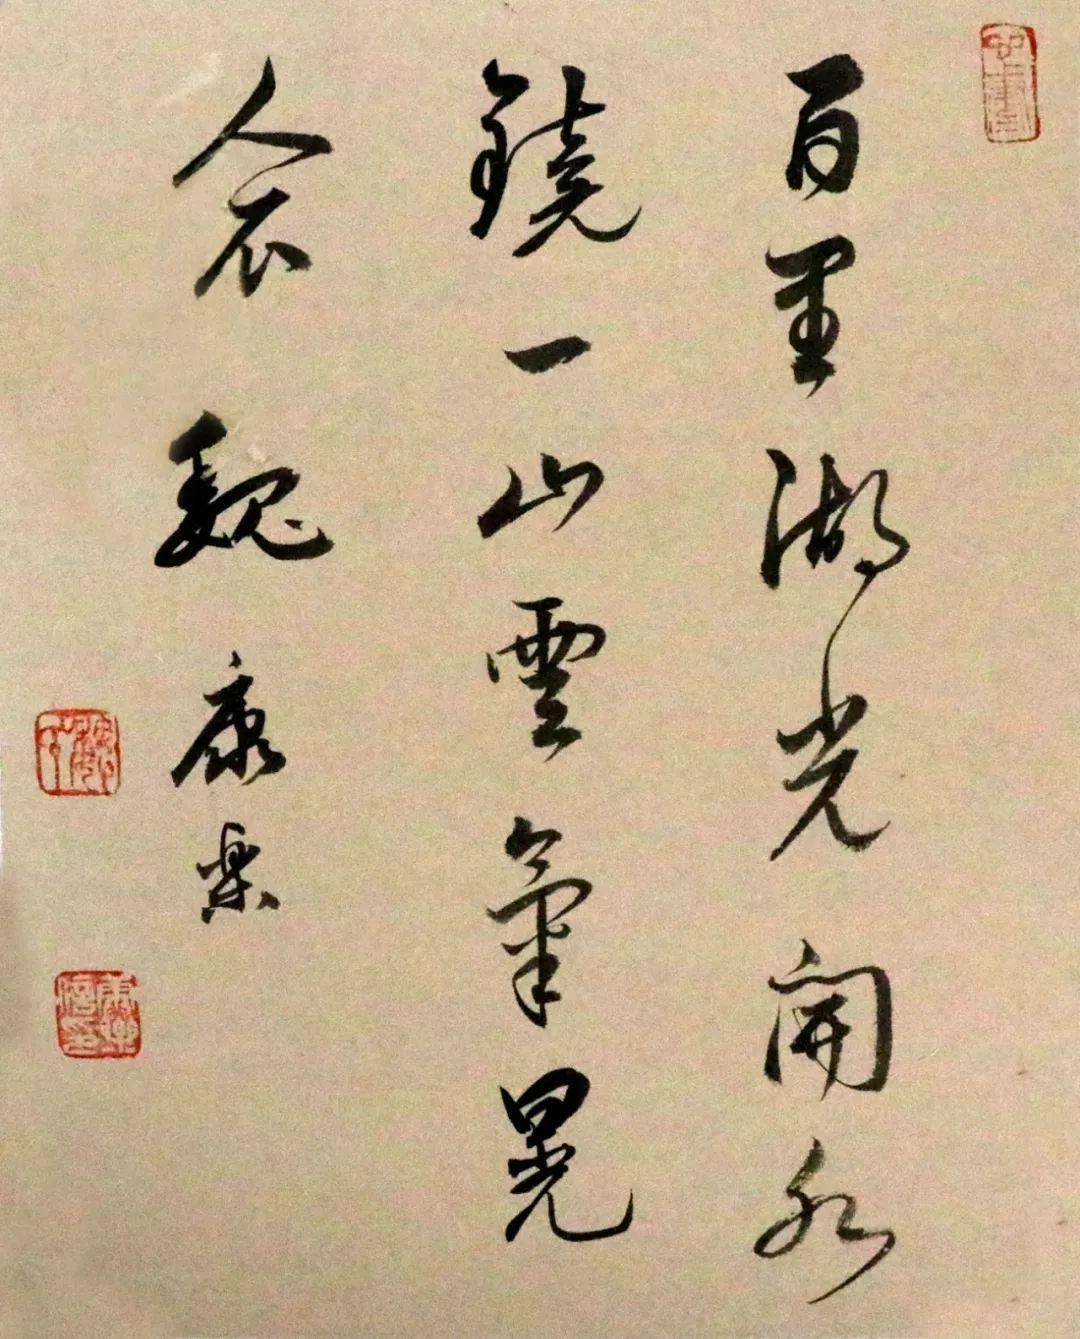 百里湖光開水
鏡一山雲氣晃
人衣 魏康樂